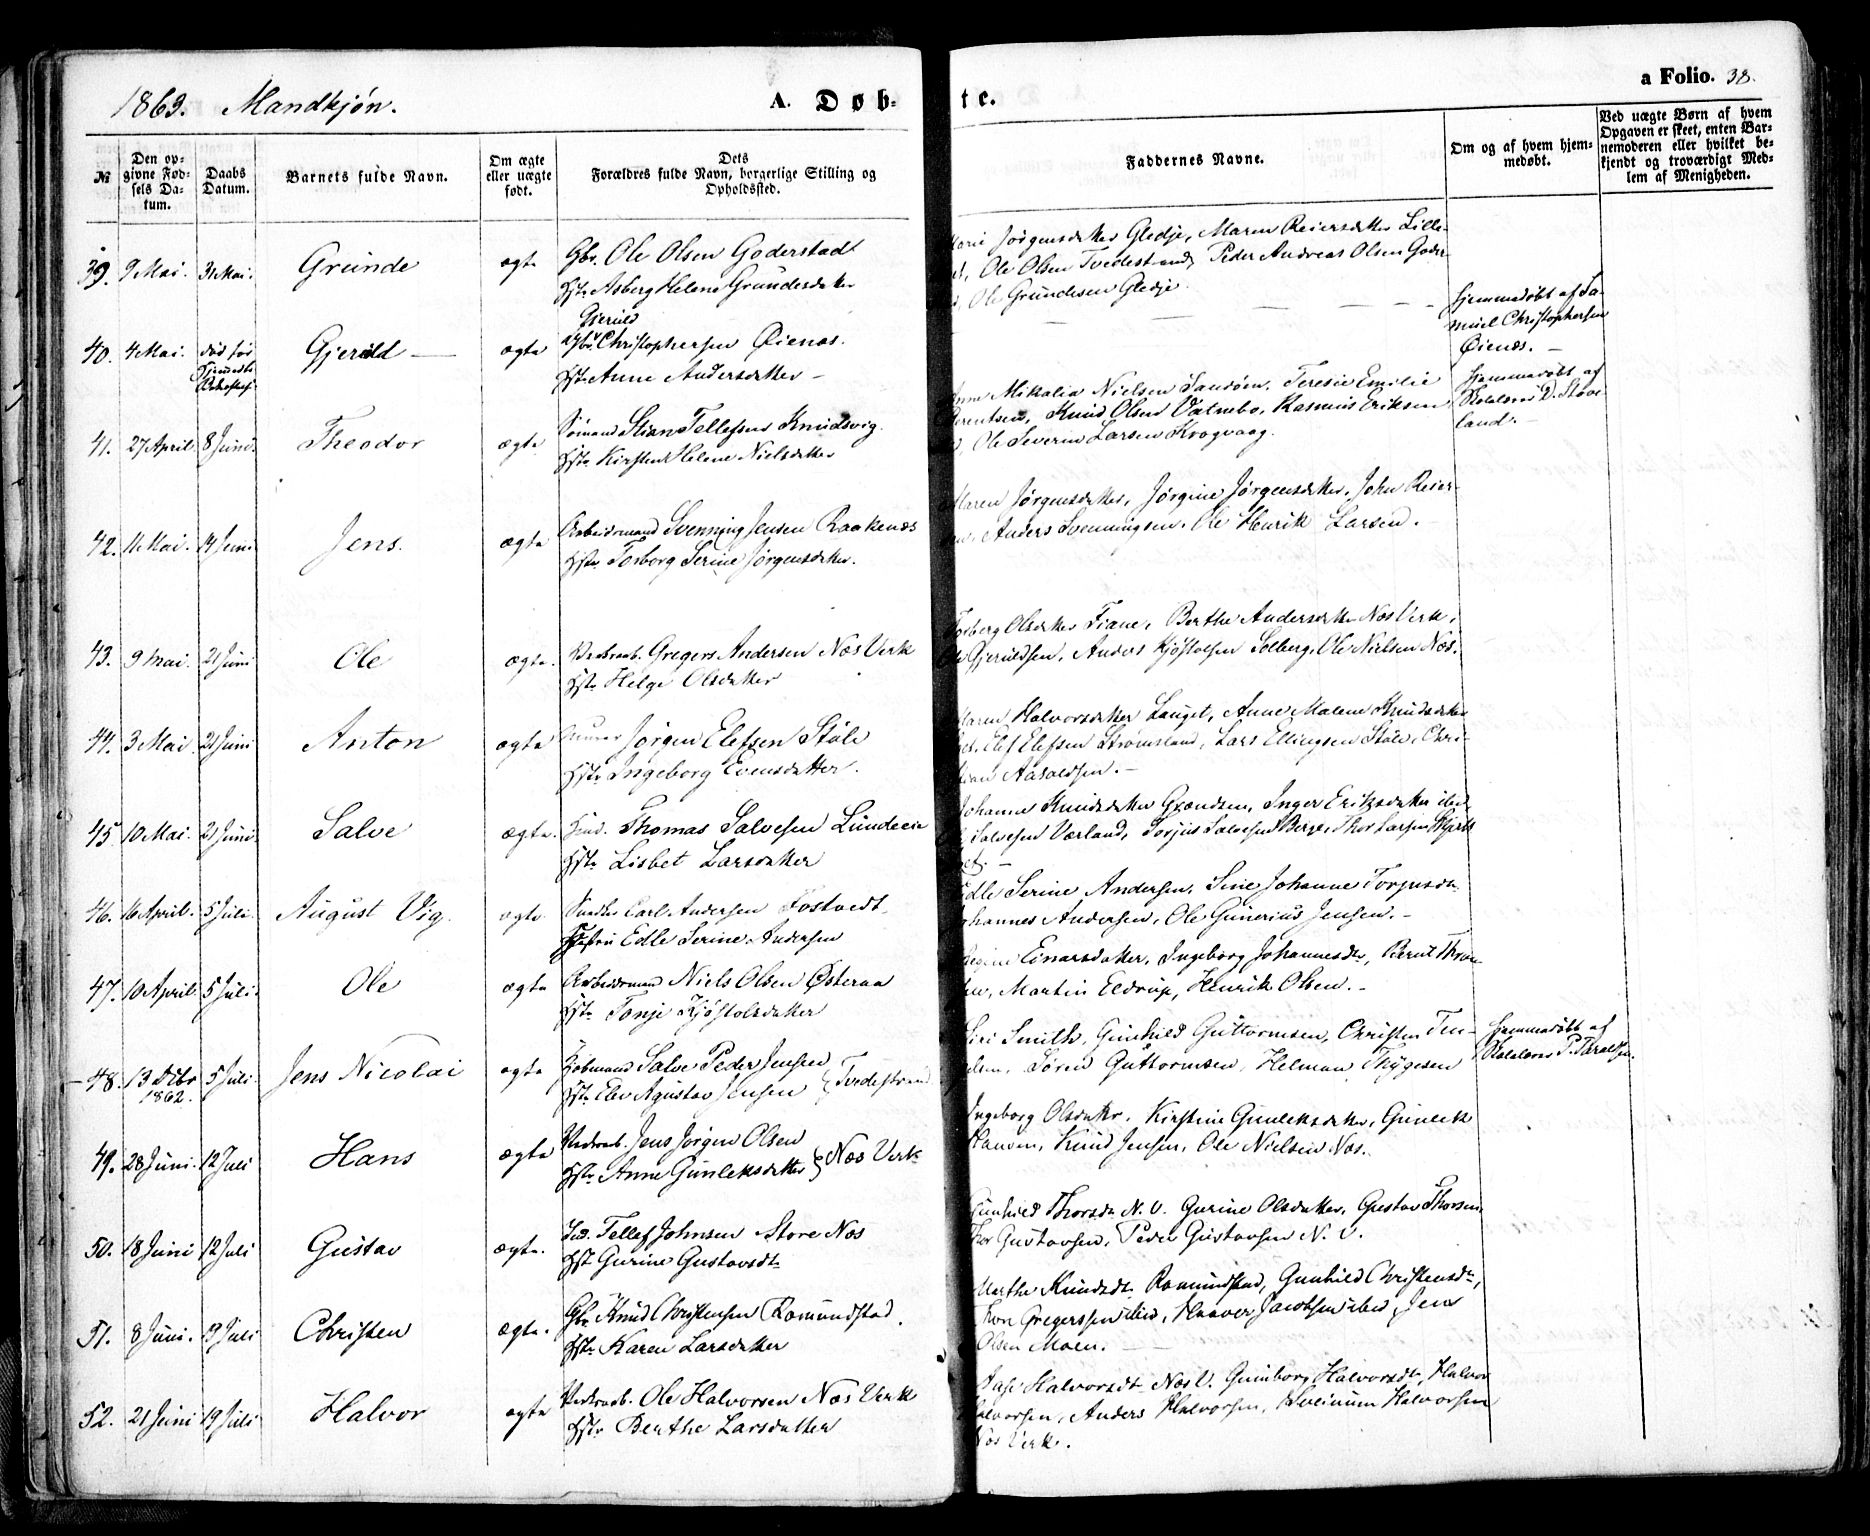 1863. Mandkjøn.
A. Døb-
te.
a Folio. 38.
№
Den op-
givne Fød-
sels Da-
tum.
Daabs
Datum.
Barnets fulde Navn.
Om ægte
eller uægte
født.
Dets
Forældres fulde Navn, borgerlige Stilling og
Opholdssted.
Faddernes Navne.
Om og af hvem hjem-
medøbt.
Ved uægte Børn af hvem
Opgaven er skeet, enten Bar-
nemoderen eller hvilket be-
kjendt og troværdigt Med-
lem af Menigheden.
39. 9 Mai. 31 Mai. Grunde ægte Gbr. Ole Olsen Goderstad
Hstr. Asberg Helene Grundesdatter
Marie Jørgensdatter Gledje, Maren Reiersdatter Lille-
Ole Olsen Tvedestrand, Peder Andreas Olsen Goder-
Ole Grundesen Gledje.
40. 4 Mai. død før Gjeruld ægte Gjeruld
Gbr. Christophersen Øienæs.
Hstr. Anne Andersdatter
Hjemmedøbt af Sa-
muel Christophersen
Øienæs.
41. 27 April. 8 Juni. Theodor ægte Sømand Stian Tellefsen Knudsvig.
Hstr. Kirsten Helene Nielsdatter
Anne Mikalia Nielsen Sandøen. Teresie Emilie
Berentsen, Knud Olsen Valnebo, Rasmus Eriksen
Ole Severin Larsen Krogvaag.
Hjemmedøbt af
Skolelærer D. Støve-
land.
42. 11 Mai. 14 Juni Jens. ægte Arbeidsmand Svenning Jensen Raakenæs
Hstr. Torborg Serine Jørgensdatter.
Maren Jørgensdatter, Jørgine Jørgensdatter. John Reier-
Anders Svenningsen. Ole Henrik Larsen.
43. 9 Mai. 21 Juni Ole ægte. Verksarb. Gregers Andersen Næs Verk
Hstr. Helge Olsdatter
Torberg Olsdatter Fiane, Berthe Andersdatter Næs Verk,
Gjeruldsen, Anders Kjøstolsen Solberg. Ole Nielsen Næs.
44. 3 Mai 21 Juni Anton ægte Jørgen Elefsen Støle
Hstr. Ingeborg Evensdatter.
Maren Halvorsdatter Lauget, Anne Malene Knudsdatter
Elef Elefsen Strømsland, Lars Ellingsen Støle, Chri-
stian Aasoldsen.
45. 10 Mai. 21 Juni. Salve ægte. Thomas Salvesen Lundeeie
Hstr. Lisbet Larsdatter
Johanne Knudsdatter Grændsen, Inger Eriksdatter ibid
Salvesen Værland, Torjus Salvesen Berge, Thor Larsen
46. 16 April. 5 Juli. August Vig. ægte Snedker Carl Andersen Fostvedt
Hustru Edle Serine Andersen
Edle Serine Andersen, Sine Johanne Torjusdr.
Johannes Andersen, Ole Gunerius Jensen.
47. 10 April. 5 Juli. Ole ægte Arbeidsmand Niels Olsen Østeraa
Hstr. Tonje Kjøstolsdatter
Regine Einarsdatter, Ingeborg Johannesdtr, Bernt Thron-
sen, Martin Eldrup, Henrik Olsen.
48. 13 Dcbr 5 Juli. Jens Nicolai ægte Kjøbmand Salve Peder Jensen
1862. Hstr. Elev Agustav Jensen } Tvedestrand
Siri Smith, Gunhild Guttormsen, Christen Ten-
Søren Guttormsen, Helman Thygesen
Hjemmedøbt af
Skolelærer P. Taraldsen.
49. 28 Juni. 12 Juli Hans ægte Verksarb. Jens Jørgen Olsen
Hstr. Anne Gunleksdatter } Næs Verk
Ingeborg Olsdatter. Kirstine Gunleksdatter, Gunlek
Hauven, Knud Jensen, Ole Nielsen Næs.
50. 18 Juni 12 Juli Gustav ægte. Ind. Tellef Johnsen Store Næs
Hst. Gurine Gustavsdtr
Gunhild Thorsdr N. V. Gurine Olsdatter, Gustav Thorsen
Thor Gustavsen, Peder Gustavsen N. V.
51. 8 Juni. 19 Juli Christen ægte. Gbr. Knud Christensen Romundstad.
Hstr. Karen Larsdatter
Marthe Knudsdtr Romundstad, Gunhild Christensdtr,
Thor Gregerssen ibid, Halvor Jacobsen ibid, Jens
Olsen Moen.
52. 21 Juni 19 Juli Halvor ægte Verksarb. Ole Halvorsen Næs Verk
Hstr. Berthe Larsdatter
Aase Halvorsdtr Næs V. Gunborg Halvorsdtr, Halvor
Halvorsen, Anders Halvorsen, Sveinum Halvorsen
Næs Verk.